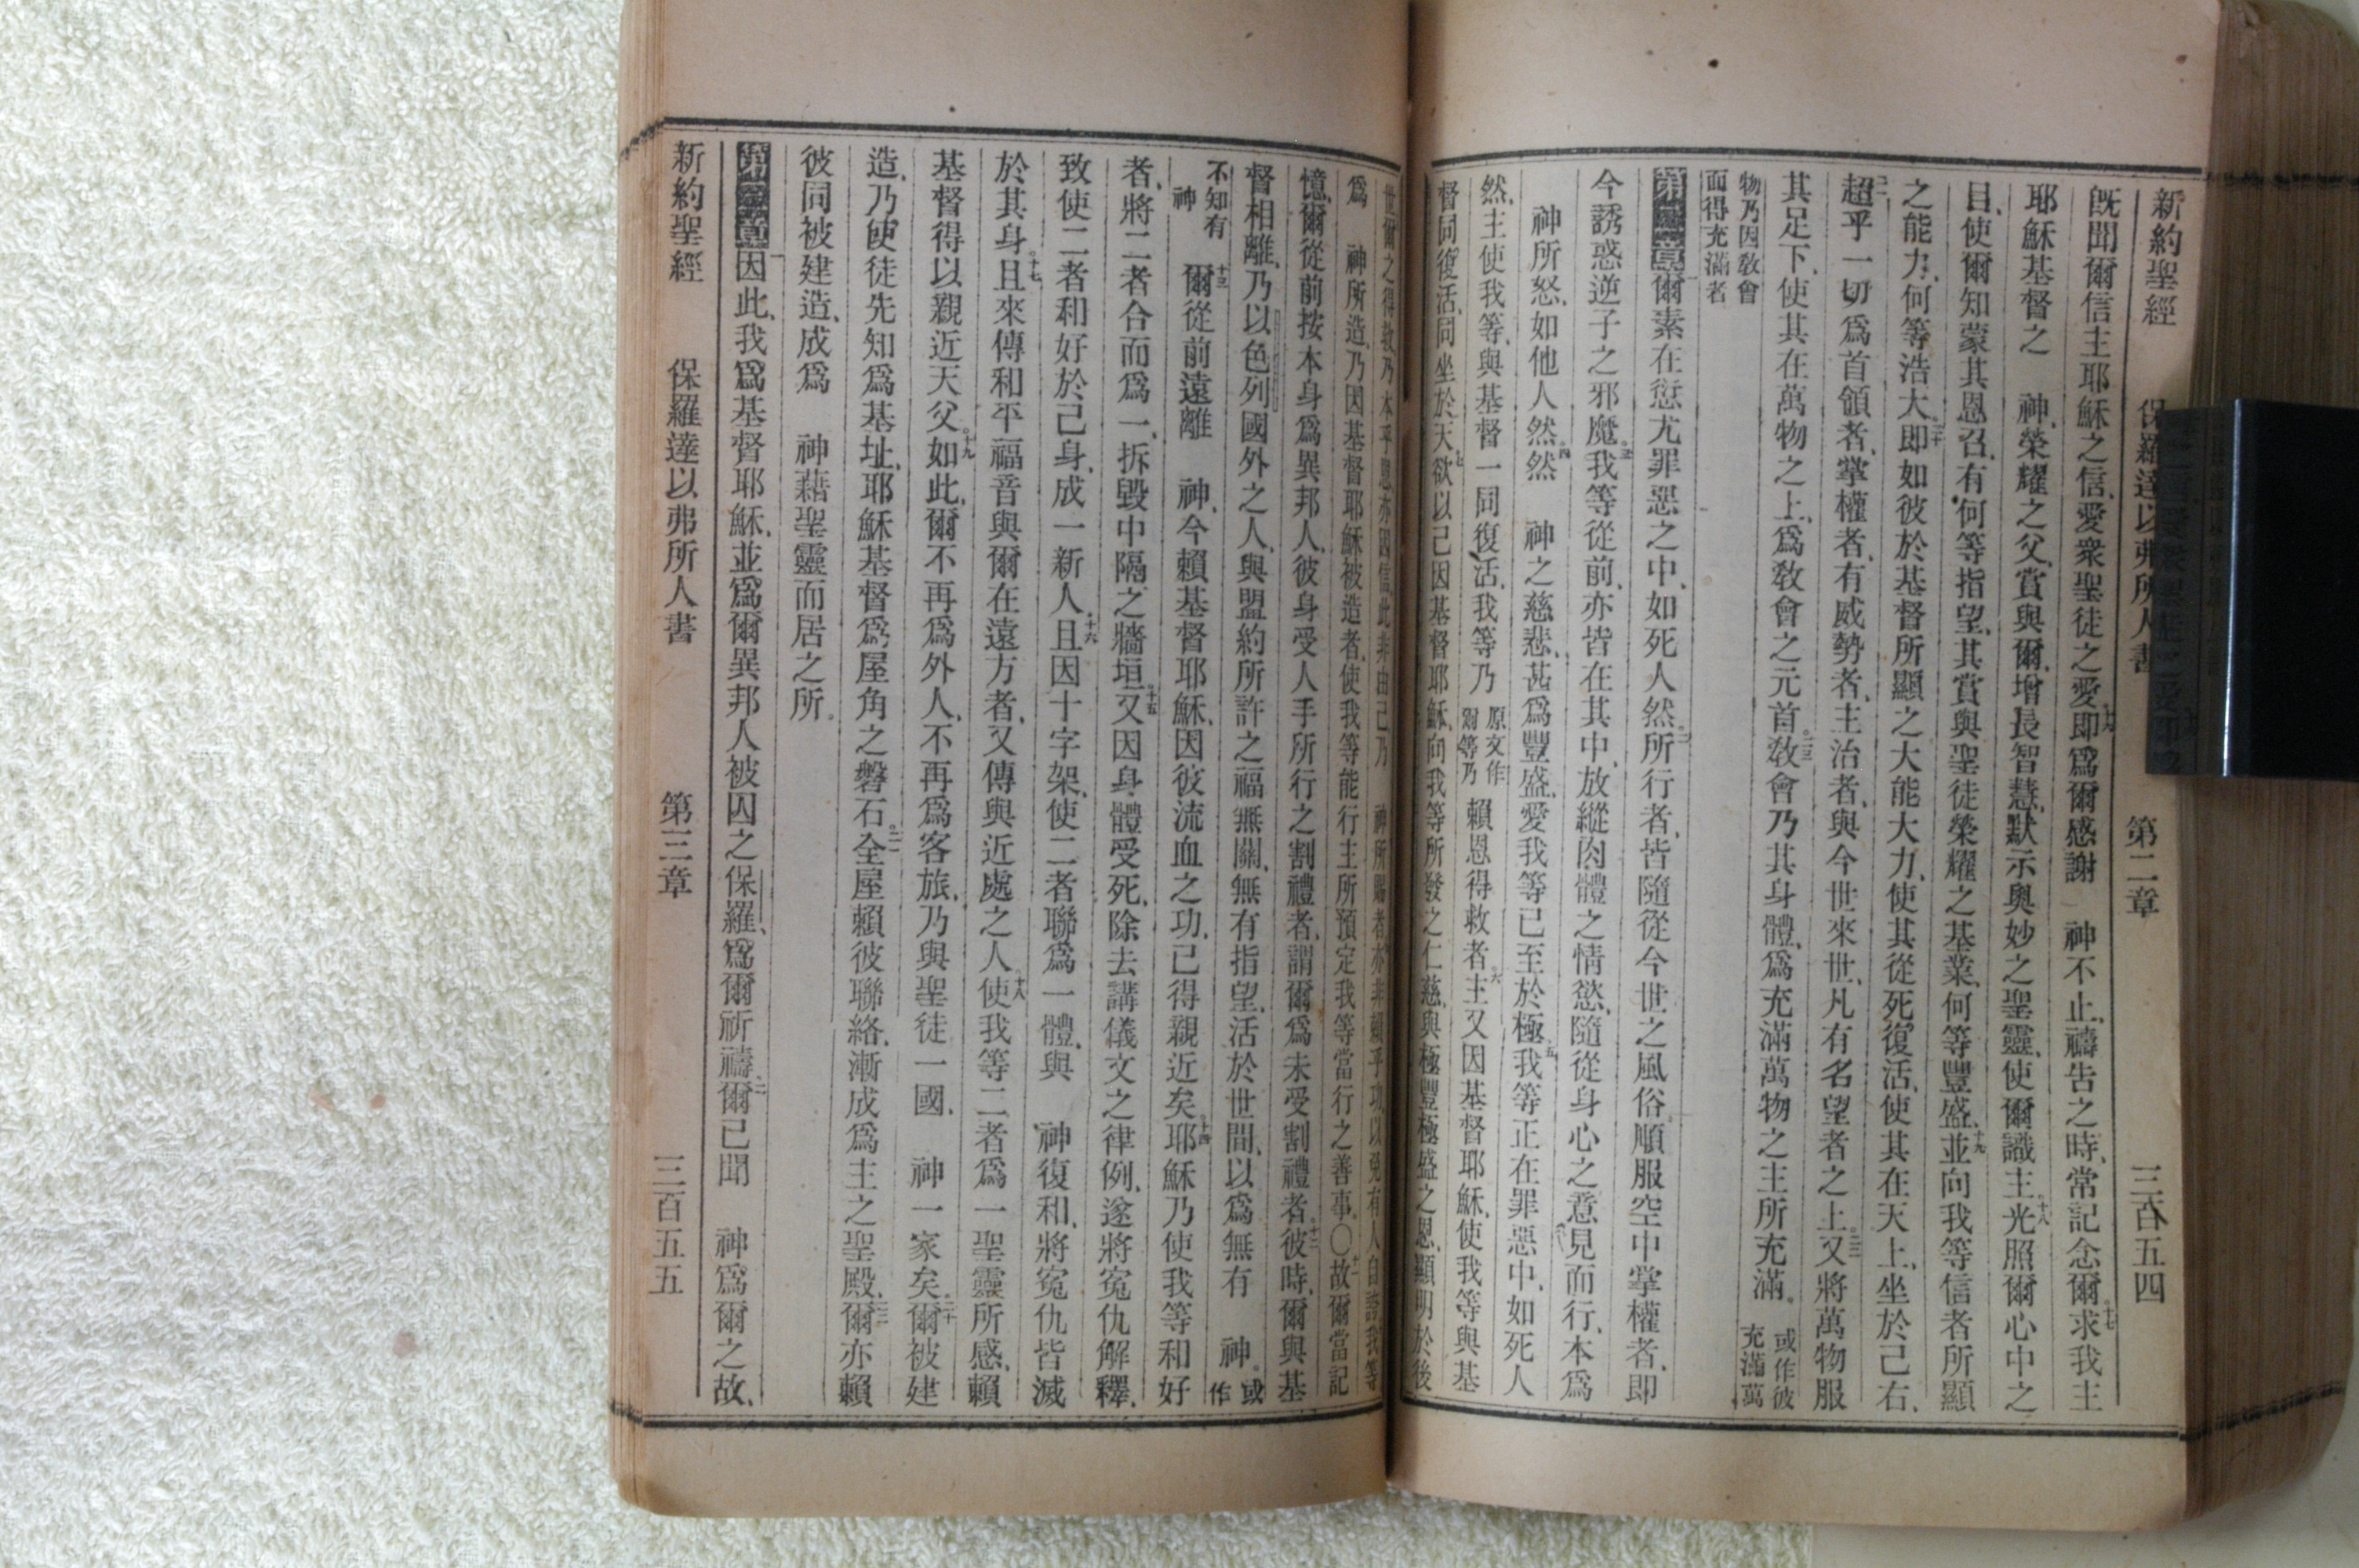 新約聖經 保羅達以弗所人書 第二章 三百五四
旣聞爾信主耶穌之信、愛衆聖徒之愛、十六即爲爾感謝 神不止、禱告之時、常記念爾、十七求我主
耶穌基督之 神、榮耀之父、賞與爾、增長智慧、默示奧妙之聖靈、使爾識主、十八光照爾心中之
目、使爾知蒙其恩召、有何等指望、其賞與聖徒榮耀之基業、何等豐盛、十九並向我等信者所顯
之能力、何等浩大、二十即如彼於基督所顯之大能大力、使其從死復活、使其在天上、坐於己右、
二一超乎一切爲首領者、掌權者、有威勢者、主治者、與今世來世、凡有名望者之上、二二又將萬物服
其足下、使其在萬物之上、爲敎會之元首、二三敎會乃其身體、爲充滿萬物之主所充滿。或作彼充滿萬
物乃因敎會面得充滿者
第二章爾素在愆尤罪惡之中、如死人然、二所行者、皆隨從今世之風俗、順服空中掌權者、即
今誘惑逆子之邪魔。三我等從前、亦皆在其中、放縱肉體之情慾、隨從身心之意見而行、本爲
神所怒、如他人然。四然 神之慈悲、甚爲豐盛、愛我等已至於極、五我等正在罪惡中、如死人
然、主使我等、與基督一同復活、我等乃原文作爾等乃賴恩得救者。六主又因基督耶穌、使我等與基
督同復活、同坐於天、七欲以己因基督耶穌、向我等所發之仁慈、與極豐極盛之恩、顯明於後
世、爾之得救、乃本乎恩、亦因信、此非由己、乃 神所賜者、亦非賴乎功、以免有人自誇、我等
爲 神所造、乃因基督耶穌被造者、使我等能行主所預定我等當行之善事。〇十一故爾當記
憶、爾從前按本身爲異邦人、彼身受人手所行之割禮者、謂爾爲未受割禮者。十二彼時、爾與基
督相離、乃以色列國外之人、與盟約所許之福無關、無有指望、活於世間、以爲無有 神。或作
不知有神 十三爾從前遠離 神、今賴基督耶穌、因彼流血之功、已得親近矣。十四耶穌乃使我等和好
者、將二者合而爲一、拆毀中隔之牆垣。十五又因身體受死、除去講儀文之律例、遂將寃仇解釋、
致使二者和好於己身、成一新人、十六且因十字架、使二者聯爲一體、與 神復和、將寃仇皆滅
於其身。十七且來傳和平福音與爾在遠方者、又傳與近處之人。十八使我等二者爲一聖靈所感、賴
基督得以親近天父。十九如此、爾不再爲外人、不再爲客旅、乃與聖徒一國、 神一家矣、二十爾被建
造、乃使徒先知爲基址、耶穌基督爲屋角之磐石。二一全屋賴彼聯絡、漸成爲主之聖殿、二二爾亦賴
彼同被建造、成爲 神藉聖靈而居之所。
第三章一因此、我爲基督耶穌、並爲爾異邦人被囚之保羅、爲爾祈禱、二爾已聞 神爲爾之故、
新約聖經 保羅達以弗所人書 第三章 三百五五